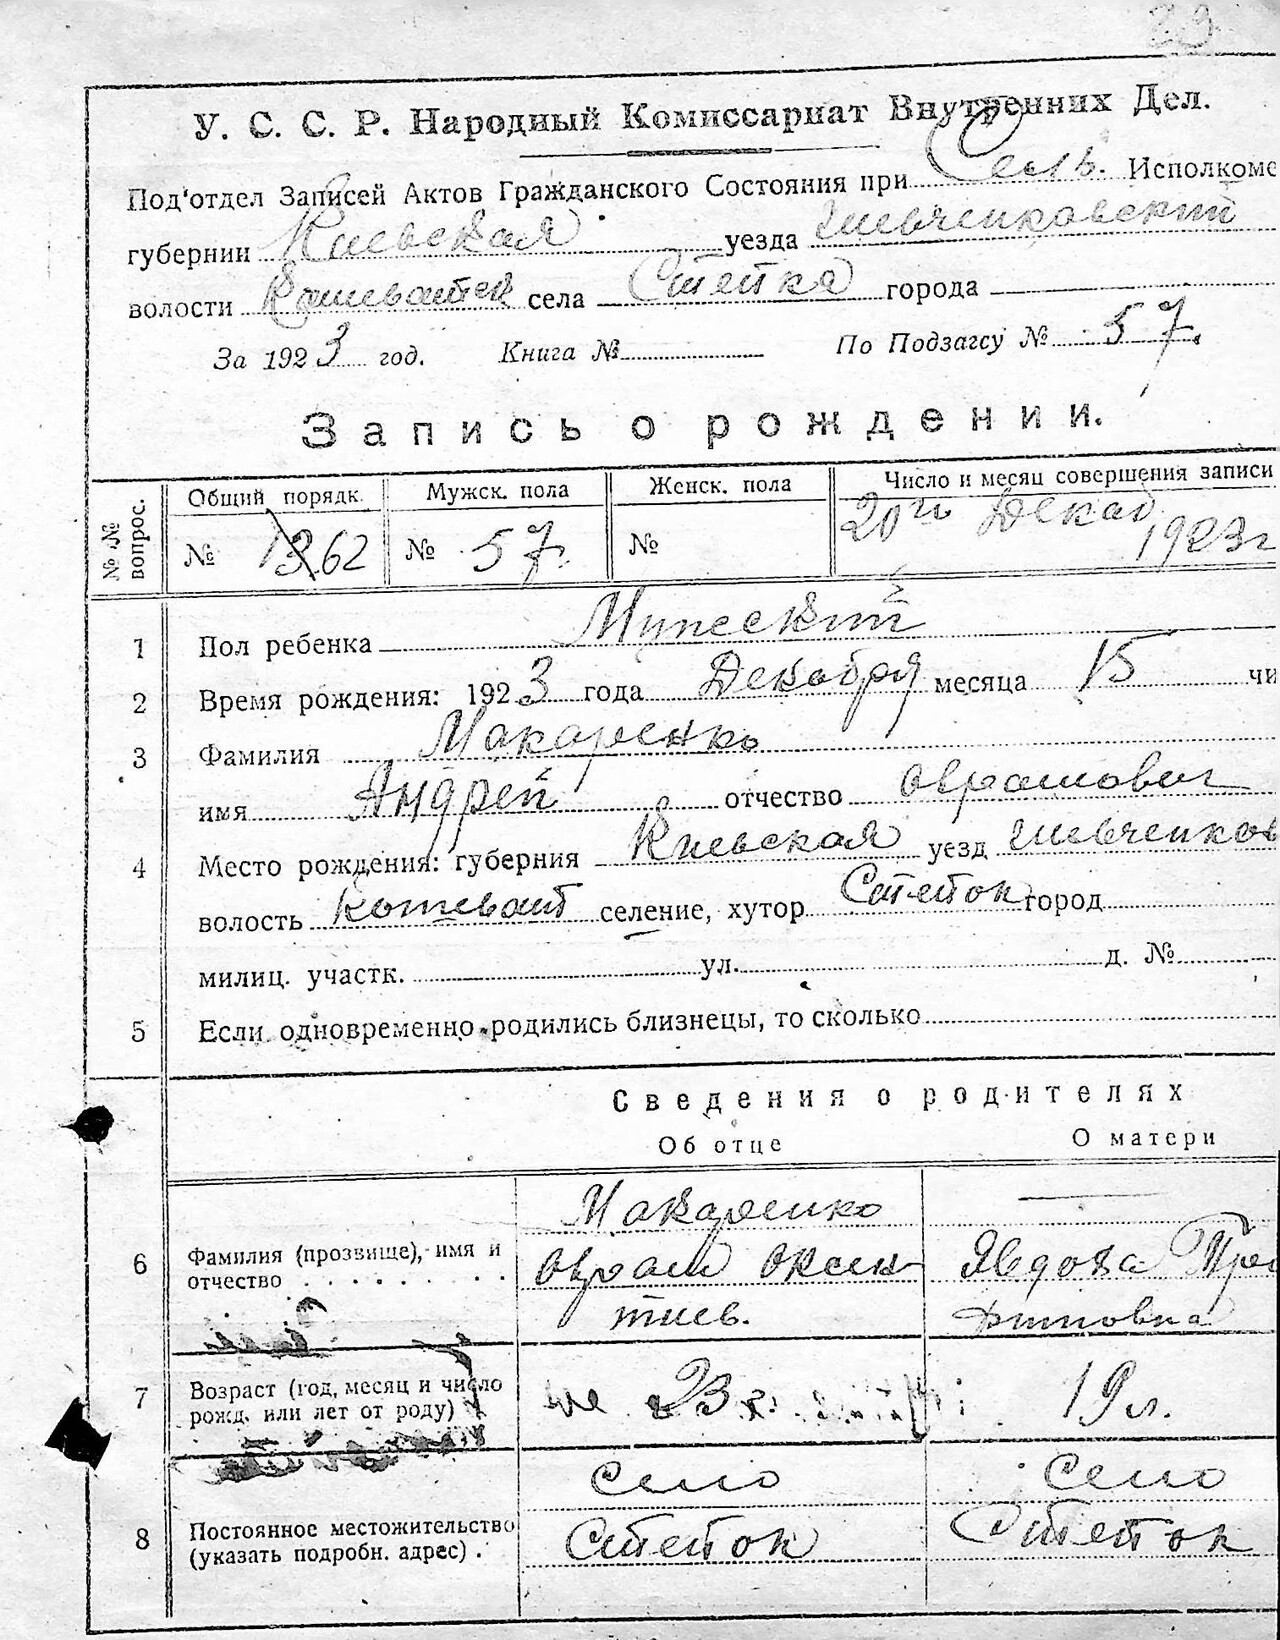 29
У. С. С. Р. Народный Комиссариат Внутренних Дел.
Под'отдел Записей Актов Гражданского Состояния при Сель. Исполкоме
губернии Киевская уезда Шевченковский
волости села Степка города
За 1923 год. Книга № По Подзагсу № 57.
Запись о рождении.
№№ вопрос. Общий порядк. Мужск. пола Женск. пола Число и месяц совершения записи
№ 62 № 57 № 20го Декаб 1923г
1 Пол ребенка Мужеский
2 Время рождения: 1923 года Декабря месяца 15 чи
3 Фамилия Макаренко
имя Андрей отчество Оврамович
4 Место рождения: губерния Киевская уезд Шевченков
волость Кошеват селение, хутор Степок город
милиц. участк. ул. д. №
5 Если одновременно родились близнецы, то сколько
Сведения о родителях
Об отце О матери
6 Фамилия (прозвище), имя и отчество
Макаренко
Оврам Оксен
тиев.
Явдоха
7 Возраст (год, месяц и число рожд. или лет от роду)
23 19 л.
8 Постоянное местожительство (указать подробн. адрес).
село село
Степок Степок